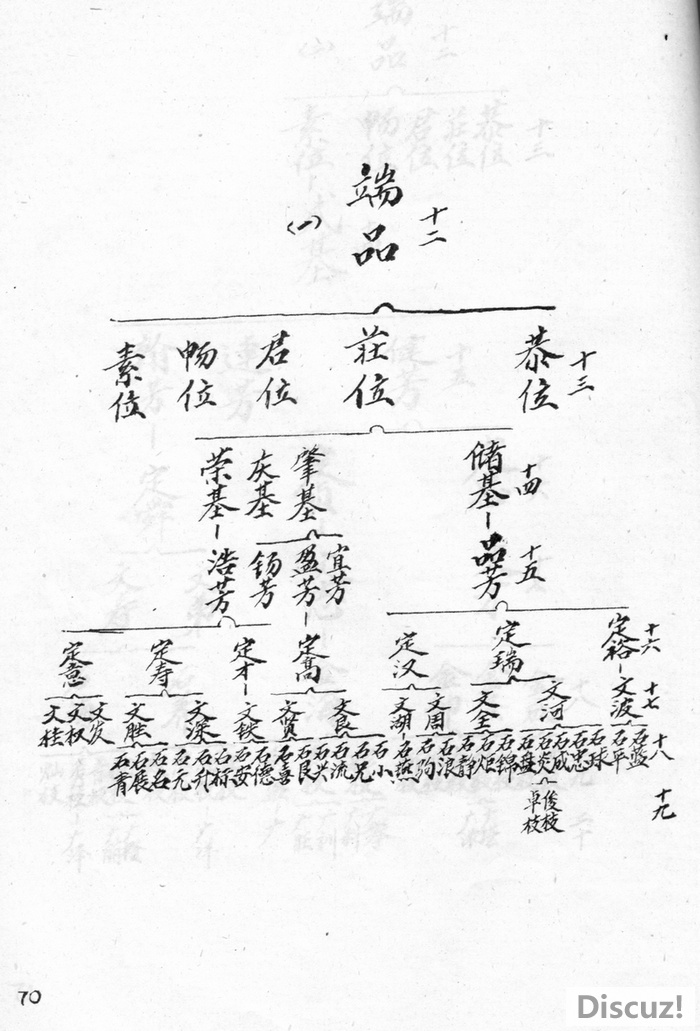 端品 十二
(一)
恭位 莊位 君位 畅位 素位 十三
储基 肇基 灰基 荣基 十四
品芳 宜芳 盈芳 钖芳 浩芳 十五
定裕 定瑞 定汉 定高 定才 定寿 定意 十六
文波 文河 文全 文周 文湖 文良 文贤 文铁 文深 文胜 文发 文权 文桂 十七
石蓝 石平 石球 石忠 石成 石炎 石盘 石锦 石炬 石静 石浪 石狗 石燕 石小 石兄 石流 石兴 石良 石喜 石億 石安 石标 石升 石元 石名 石展 石青 十八
俊枝 卓枝 十九
70
Discuz!